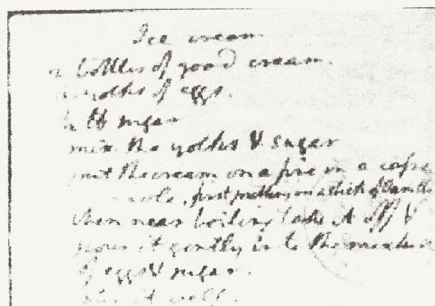 Ice cream.
2 bottles of good cream.
6 yolks of eggs.
½ lb sugar
mix the yolks & sugar
put the cream on a fire in a casse
role, first putting in a stick of Vanilla
when near boiling take it off &
pour it gently into the mixture
of eggs & sugar.
stir it well.